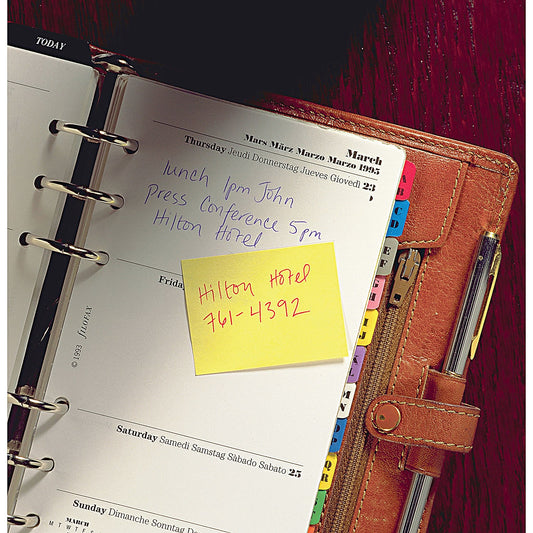 TODAY
March
Mars März Marzo Marzo 1995
Thursday Jeudi Donnerstag Jueves Giovedì 23
lunch 1pm John
Press Conference 5pm
Hilton Hotel
Frida
Hilton Hotel
761-4392
© 1993 fILOFAX
Saturday Samedi Samstag Sàbado Sabato 25
Sunday Dimanche Sonntag Do
MARCH
M T W T F S
A
B
C
D
E
F
G
H
I
J
K
L
M
N
O
P
Q
R
S
T